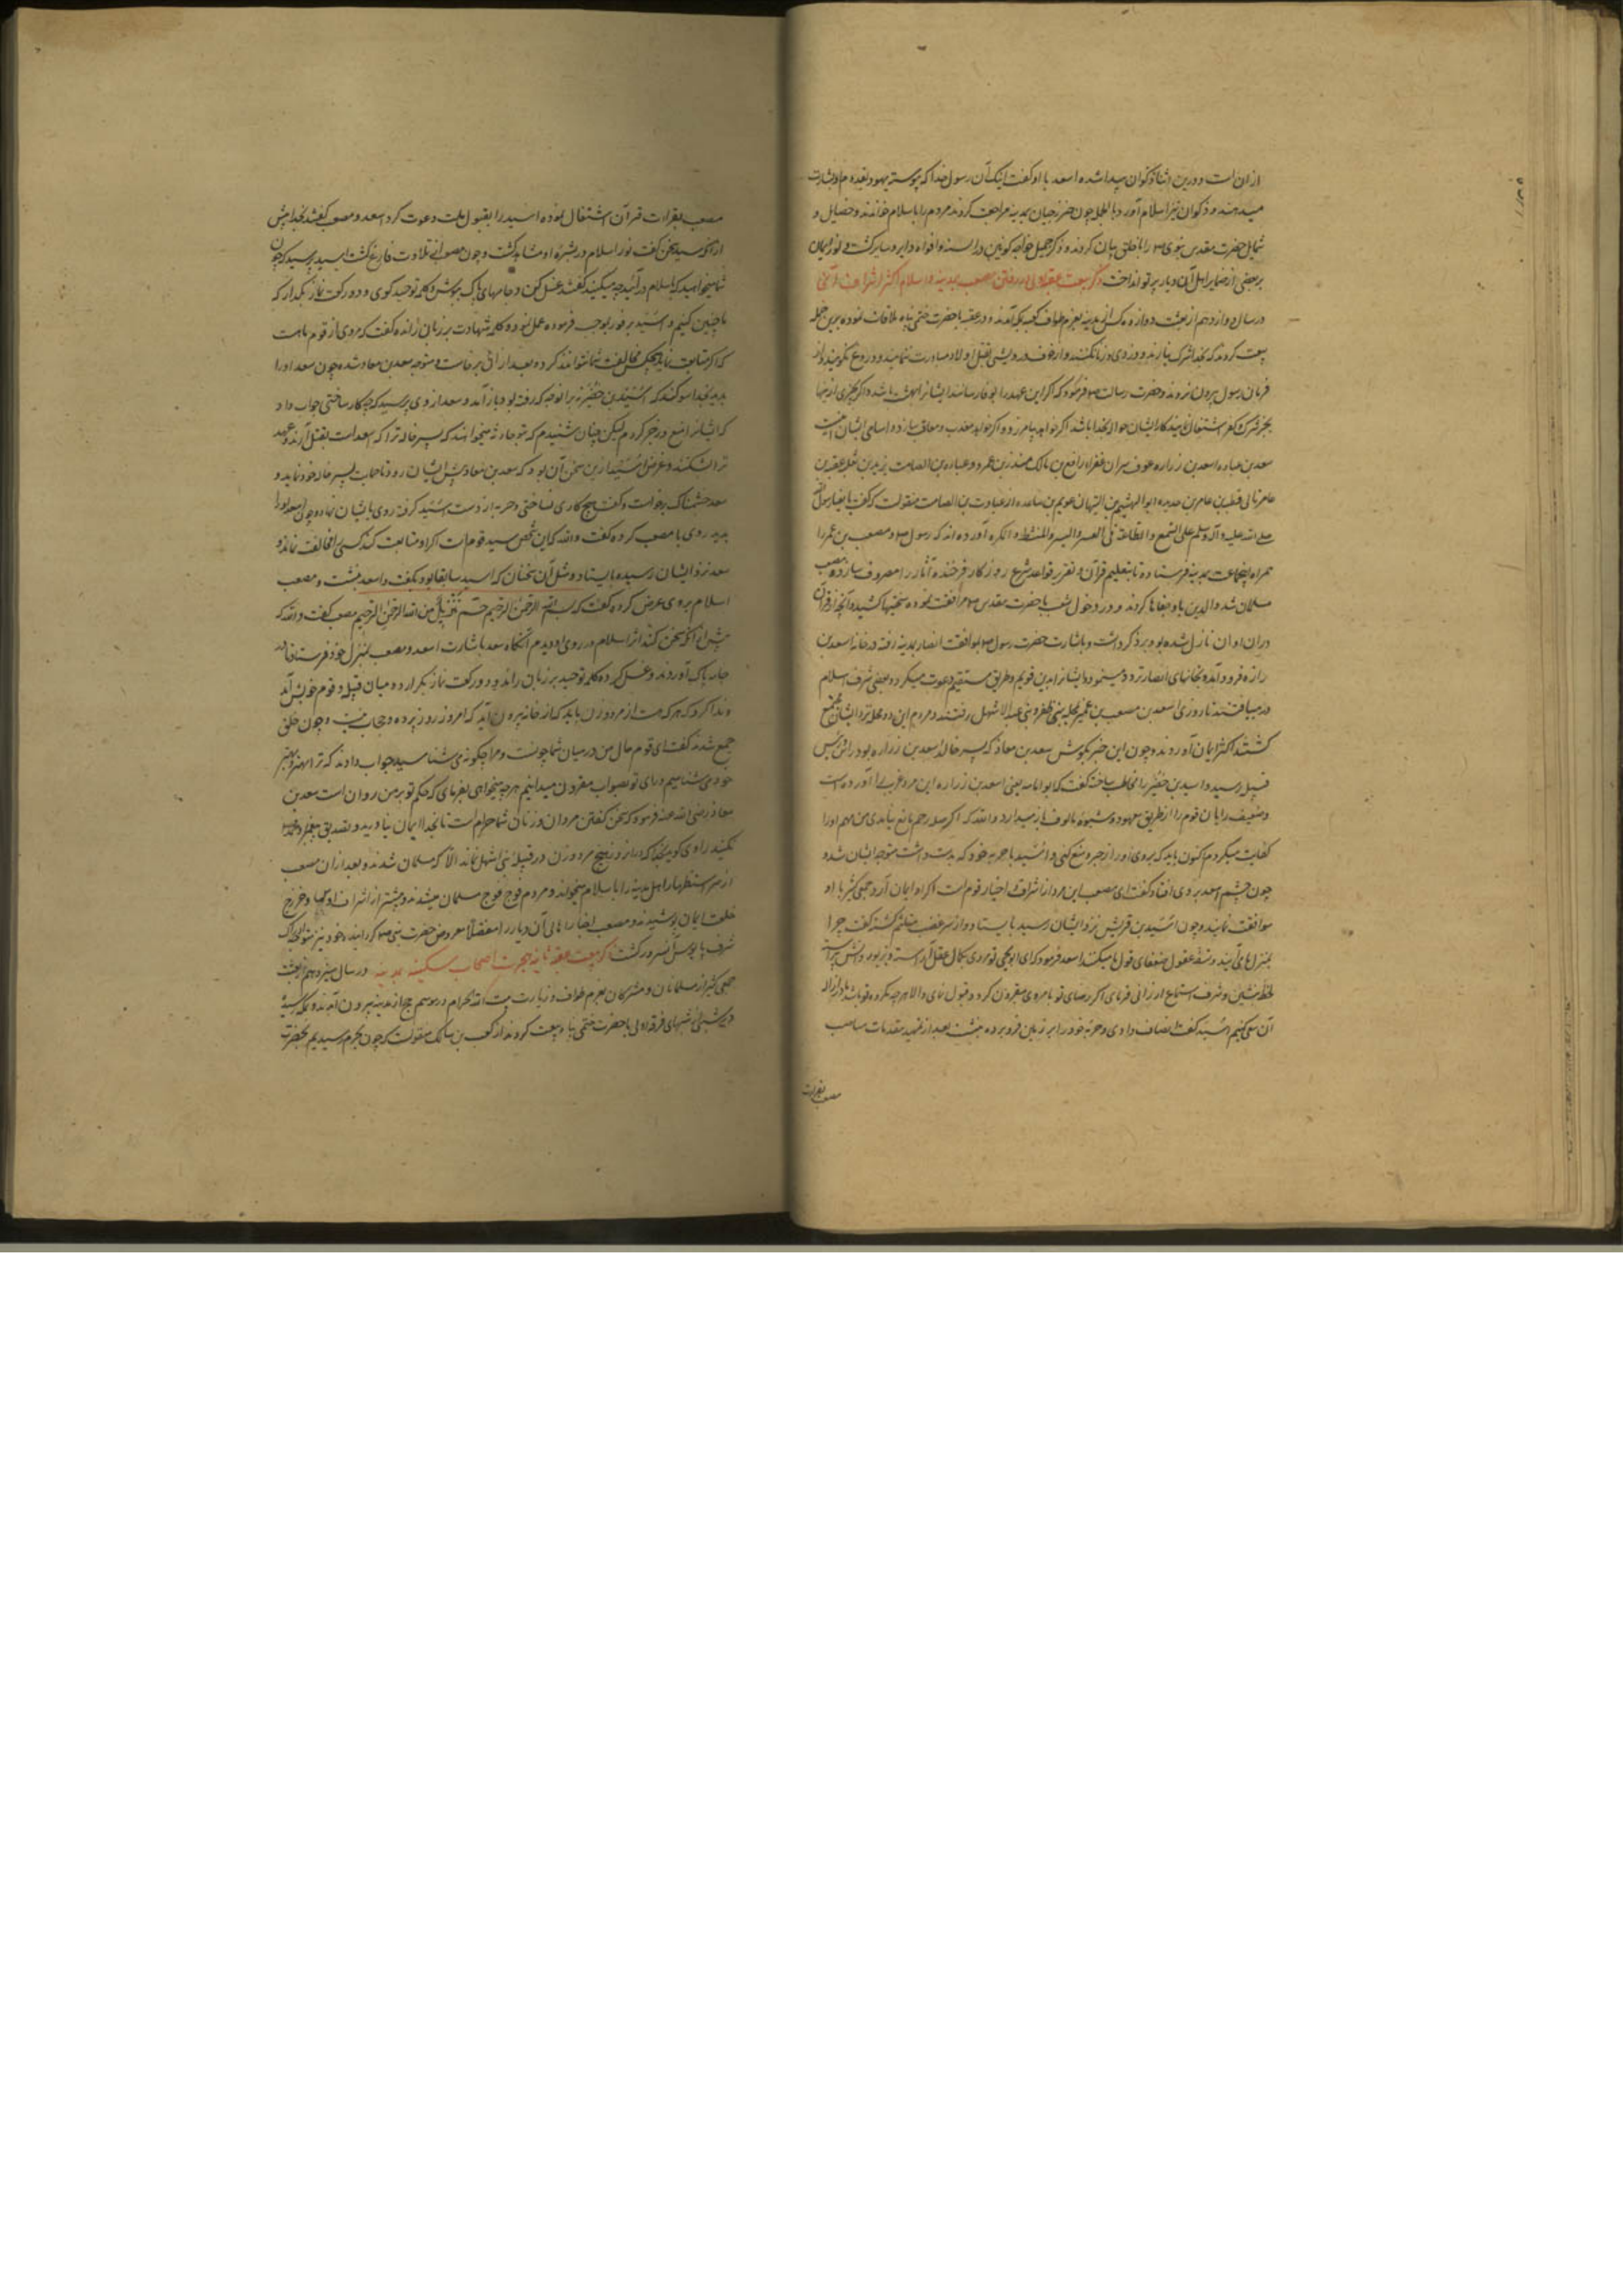 ازان است و درین اثنا ذکوان پیدا شده اسعد با او گفت اینک آن رسول خدا که پیوسته یهود بقدوم او بشارت
میدهند و ذکوان نیز اسلام آورد و بالجمله چون خزرجیان بمدینه مراجعت کردند مردم را باسلام خواندند و خصایل و
شمایل حضرت مقدس نبوی را با خلق بیان کردند و ذکر جمیل خواجه کونین در السنه و افواه دایر و سایر گشت و نور ایمان
بر بعضی از ضمایر اهل آن دیار پرتو انداخت ذکر بیعت عقبه اولی و رفتن مصعب بمدینه و اسلام اکثر اشراف
در سال دوازدهم از بعثت دوازده کس از مدینه بعزم طواف کعبه بمکه آمدند و در عقبه با حضرت ختمی پناه ملاقات نموده برین جمله
بیعت کردند که بخدا شرک نیارند و دزدی و زنا نکنند و از خوف درویشی بقتل اولاد مبادرت ننمایند و دروغ نگویند و از
فرمان رسول بیرون نروند و حضرت رسالت فرمود که اگر این عهد را بوفا رسانند ایشانرا بهشت باشد و اگر بچیزی ازینها
بجز شرک و کفر اشتغال نمایند کار ایشان حواله بخدا باشد اگر خواهد بیامرزد و اگر خواهد معذب و معاقب سازد و اسامی ایشان اینست
سعد بن عباده اسعد بن زراره عوف پسران عفراء رافع بن مالک منذر بن عمرو و عباده بن الصامت یزید بن ثعلبه عقبه بن
عامر نابی قطبه بن عامر بن حدیده ابوالهیثم بن التیهان عویم بن ساعده از عبادت بن الصامت منقولست که گفت بایعنا رسول الله
صلی الله علیه و آله و سلم علی السمع و الطاعة فی العسر و الیسر و المنشط و المکره آورده اند که رسول مصعب بن عمیر را
همراه اینجماعت بمدینه فرستاده تا بتعلیم قرآن و تقریر قواعد شرع روزگار فرخنده آثار را مصروف سازد و مصعب
مسلمان شد والدین باو جفاها کردند و در دخول شعب با حضرت مقدس مرافقت نموده سختیها کشید و آنچه از قرآن
دران اوان نازل شده بود بر ذکر داشت و باشارت حضرت رسول بموافقت انصار بمدینه رفته در خانه اسعد بن
زراره فرود آمد و بخانهای انصار تردد مینمود و ایشانرا بدین قویم و طریق مستقیم دعوت میکرد و بعضی شرف اسلام
در مییافتند تا روزی اسعد بن مصعب بن عمیر بمحله بنی ظفر و بنی عبد الاشهل رفتند و مردم این دو محله نزد ایشان مجتمع
گشتند اکثر ایمان آوردند و چون این خبر بگوش سعد بن معاذ که پسر خاله اسعد بن زراره بود و رئیس
قبیله رسید و اسید بن حضیر را مخاطب ساخت گفت که ابوامامه یعنی اسعد بن زراره این مرد غریب را آورده است
و ضعیف رایان قوم را از طریق معهود و شیوه مالوف باز میدارد و الله که اگر صله رحم مانع نیامدی من مهم او را
کفایت میکردم اکنون باید که بروی او را زجر و منع کنی و اسید با حربه خود که بدست داشت متوجه ایشان شد و
چون چشم اسعد بر وی افتاد گفت ای مصعب این مرد از اشراف و اخیار قوم است اگر او ایمان آرد جمعی کثیر با او
موافقت نمایند و چون اسید بن قریش نزد ایشان رسید بایستاد و از سر غضب متکلم گشته گفت چرا
بمنزلهای آیند و سفه عقول ضعفای قوم ما میکنند اسعد فرمود که ای ابویحیی تو مردی بکمال عقل آراسته و بزیور دانش پیراسته
لحظه بنشین و شرف استماع ارزانی فرمای اگر رضای تو بامر وی مقرون گردد قبول نمای والا هر چه مکروه تو باشد ما در ازاله
آن سعی کنیم اسید گفت انصاف دادی و حربه خود را بر زمین فرو برده بنشست بعد از تمهید مقدمات مناسب
مصعب بقراءت
مصعب بقراءت قرآن اشتغال نموده اسید را بقبول ملت دعوت کرد اسعد و مصعب گفتند بخدا پیش
از آنکه سید سخن گفت نور اسلام در بشره او مشاهد گشت و چون مصعب از تلاوت فارغ گشت اسید پرسید که چون
شما میخواهید که باسلام درآئید چه میکنید گفتند غسل کن و جامهای پاک بپوش و کلمه توحید گوی و دو رکعت نماز بگذار که
ما چنین کنیم و اسید بر فور بموجب فرموده عمل نمود و کلمه شهادت بر زبان رانده گفت که مردی از قوم ما هست
که اگر متابعت نماید هیچکس مخالفت شما نتواند کرد و بعد از آن برخاست و متوجه سعد بن معاذ شده چون سعد او را
بدید بخدا سوگند که اسید بن حضیر نه برانوجه که رفته بود باز آمد و سعد از وی پرسید که چه کار ساختی جواب داد
که ایشانرا منع و زجر کردم لیکن چنان شنیدم که بنو حارثه میخواهند که پسر خاله ترا که اسعد است بقتل آرند و عهد
ترا بشکنند و غرض اسید ازین سخن آن بود که سعد بن معاذ پیش ایشان رود تا حمایت پسر خاله خود نماید و
سعد خشمناک برخواست و گفت هیچ کاری نساختی و حربه از دست اسید گرفته روی بایشان نهاده چون اسعد او را
بدید روی با مصعب کرده گفت والله که این شخص سید قوم است اگر او متابعت کند کسی را مخالفت نماند و
سعد نزد ایشان رسیده بایستاد و مثل آن سخنان که اسید سابقا بود بگفت و اسعد بنشست و مصعب
اسلام بروی عرض کرده گفت که بسم الله الرحمن الرحیم حم تنزیل من الله الرحمن الرحیم مصعب گفت والله که
پیش از آنکه سخن کند اثر اسلام در روی او دیدم آنگاه سعد باشارت اسعد و مصعب بمنزل خود فرستاد تا دو
جامه پاک آوردند و غسل کرده کلمه توحید بر زبان راند و دو رکعت نماز بگزارد و میان قبیله و قوم خویش آمد
و ندا کرد که هر که هست از مرد و زن باید که از خانه بیرون آید که امروز روز پرده و حجاب نیست و چون خلق
جمع شدند گفت ای قوم حال من در میان شما چونست و مرا چگونه می شناسید جواب دادند که ترا بهتر و مهتر
خود می شناسیم و رای تو بصواب مقرون میدانیم هر چه میخواهی بفرمای که حکم تو بر من روان است سعد بن
معاذ رضی الله عنه فرمود که سخن گفتن مردان و زنان شما حرام است تا بخدا ایمان نیاورید و تصدیق پیغمبر
نکنید راوی گوید بخدا که ازان روز هیچ مرد و زن در قبیله بنی اشهل نماند الا که مسلمان شدند و بعد ازان مصعب
از سر استظهار اهل مدینه را باسلام میخواند و مردم فوج فوج مسلمان میشدند و پیشتر از اشراف اوس و خزرج
خلعت ایمان پوشیدند و مصعب اخبار اهالی آن دیار را مفصلا معروض حضرت نبی گردانید و خود نیز متوجه
شرف پابوس آنسرور گشت ذکر بیعت عقبه ثانیه و هجرت اصحاب سکینه بمدینه در سال سیزدهم از بعثت
جمعی کثیر از مسلمانان و مشرکان بعزم طواف و زیارت بیت الله الحرام در موسم حج از مدینه بیرون آمدند و بمکه رسیده
در شبی از شبهای فرقه اولی با حضرت ختمی پناه بیعت کردند از کعب بن مالک منقولست که چون بحرم رسیدیم بحضرت